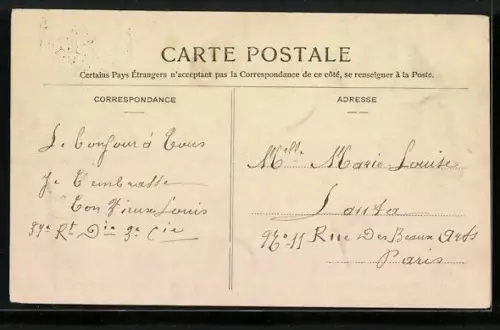 CARTE POSTALE
Certains Pays Étrangers n'acceptant pas la Correspondance de ce côté, se renseigner à la Poste.
CORRESPONDANCE
Le bonjour à Tous
Je t'embrasse
Ton Vieux Louis
37e Rt D 9e Cie
ADRESSE
Melle Marie Louise
No 11 Rue Des Beaux Arts
Paris